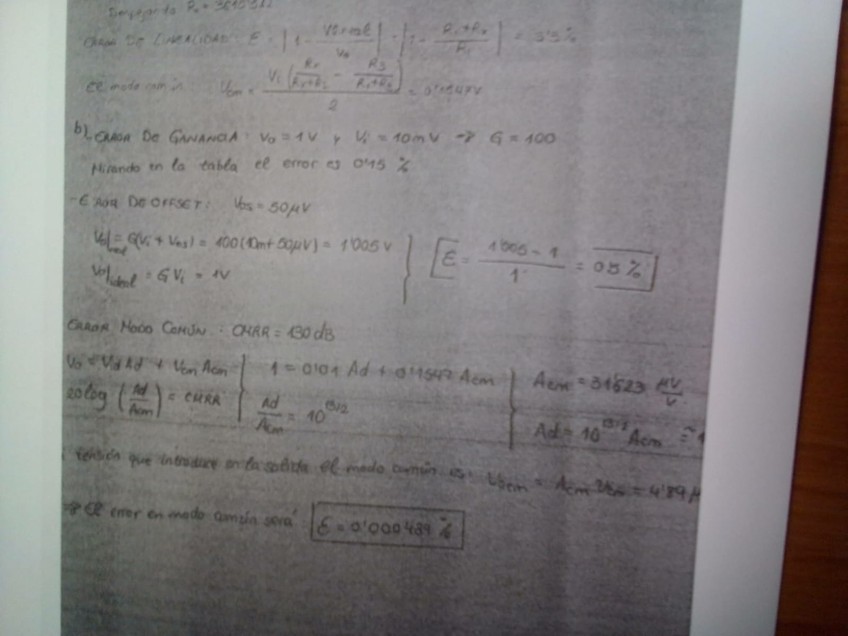 Despejando R
- ERROR DE LINEALIDAD: E = |1 - Vo real / Vo| = |1 - R1+Rx / R1| = 3'3 %
El modo común: Vcm = Vi ( Rx/Rx+R2 - R3/ ) / 2 =
b) ERROR DE GANANCIA: Vo = 1V y Vi = 10mV → G = 100
Mirando en la tabla el error es 0'15 %
- ERROR DE OFFSET: Vos = 50µV
Vo|real = G(Vi + Vos) = 100(10m + 50µV) = 1'005 V
Vo|ideal = G Vi = 1V
[ε = 1'005 - 1 / 1 = 0'5 %]
ERROR MODO COMÚN: CMRR = 130 dB
Vo = Vd Ad + Vcm Acm } 1 = 0'01 Ad + 0'1547 Acm } Acm = 31'623 µV/V
20 log (Ad/Acm) = CMRR } Ad/Acm = 10^13/2 } Ad = 10^13/2 Acm =
tensión que introduce en la salida el modo común es: Vocm = Acm Vcm = 4'89 µ
→ El error en modo común será: ε = 0'000489 %